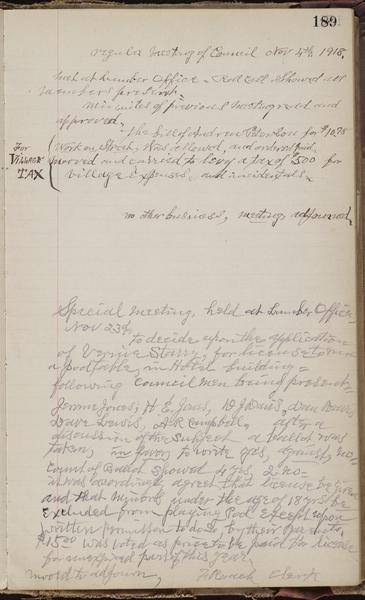 189
regular Meeting of Council Nov 4th 1918,
Met at Lumber Office. Roll Call showed all
members present.
Minutes of previous Meeting read and
approved.
The bill of Andrew for $10.78
For
Village
Tax
Work on Street, Was allowed, and ordered paid.
moved and carried to levy a tax of $500 for
Village Expenses, and incidentals.
no other business, meeting adjourned.
Special Meeting, held at Lumber Office
Nov 23rd,
to decide upon the application
of Starry, for license to run
a pool table, in Hotel building =
following Council Men being present.
Jerome Jones, H E Jones, D J Davis, Dan
Dave Lewis, A R Campbell, after a
discussion of the Subject a ballot was
taken, in favor, to write yes, against, no-
Count of Ballot showed 4 yes, 2 no-
it was accordingly agreed that license be given
and that Minors under the age of 18 yrs be
Excluded from playing Pool Except upon
written permission to do so, by their Parents,
$15.00 was voted as price to be paid for license
for unexpired part of this year,
moved to adjourn,
Roach Clerk